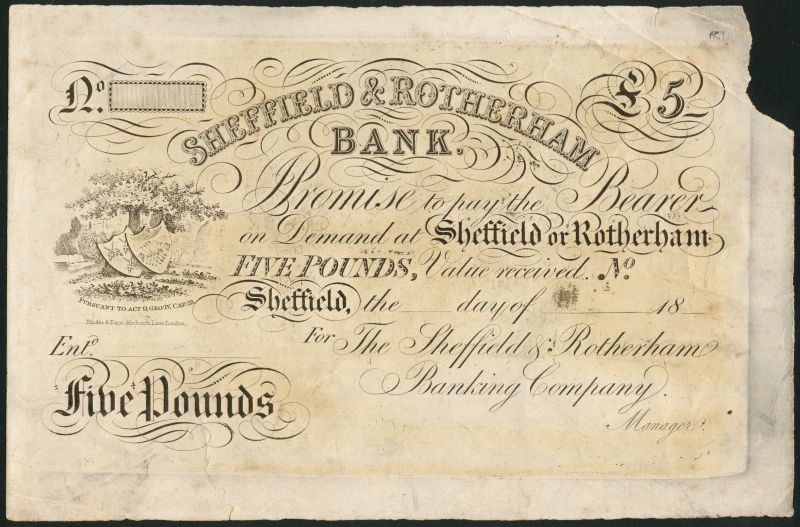 No.
SHEFFIELD & ROTHERHAM
£5
BANK.
Promise to pay the Bearer
on Demand at Sheffield or Rotherham
FIVE POUNDS, Value received. No
Sheffield, the day of 18
PURSUANT TO ACT 9, GEO. IV, CAP. 23.
Lane London
Entd.
For The Sheffield & Rotherham
Banking Company.
Five Pounds
Manager.